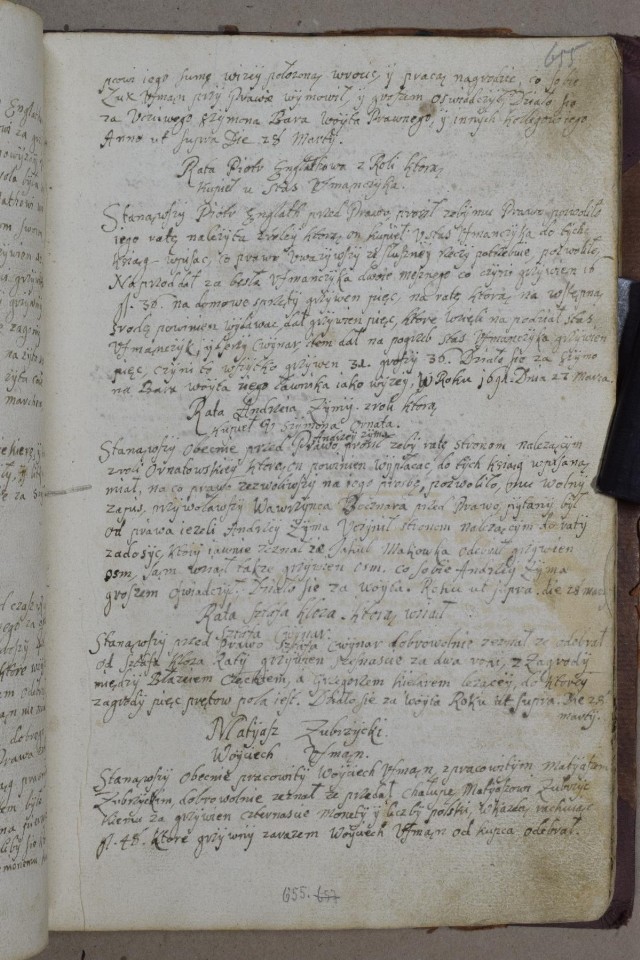 655
pcowi iego sumę wizey położoną wrocic y pracą nagrodzic, co sobie
Zuk Uſman przy Prawie wymowił, y groszem oswiadczył, Działo się
za Uczciwego Szymona Bara Woyta Prawnego, y innych Kollegow iego
Anno ut supra Die 28 Marty.
Rata Piotr Englathowa z Roli którą
kupieł u Stas Uſmanczyka.
Stanąwszy Piotr Englath przed Prawo, prosił zeby mu Prawo pozwoliło
iego ratę należytą z roley ktorą on kupieł Ustas Uſmanczyka do tych
ksiąg wpisac, co prawo Uwazywszy ze słuszney rzeczy potrzebuie, pozwoliło,
Naprzod dał za besłą Uſmanczyka dwoie mężnego co czyni grzywien 16
fl. 36. na domowe sprzęty grzywen pięc, na ratę ktorą na wstępną
srodę powinien wydawac, dał grzywien pięc, ktore wzieli na podział stas
Uſmanczyk, y Cwynar item dał na pogrzeb stas Uſmanczyka grzywien
pięc, czyni to wszytko grzywen 31. groszy 36. Działo się za Szymo
na Bara woyta iego Ławnika iako wyzey, W Roku 1691. Dnia 27 Marca.
Rata Andrzeia Zymy z roli ktorą
kupieł U Szymona Ornata.
Andrzey Zyma
Stanąwszy Obecnie przed Prawo, prosił zeby ratę stronom nalezącym
z roli Ornatowskiey ktorą on powinien wypłacac, do tych ksiąg wpisaną
miał, na co prawo zezwoliwszy na iego prosbę, pozwoliło, mu wolny
zapis, przywoławszy Wawrzynca Bocznara przed Prawo, pytany był
od prawa iezeli Andrzey Zyma Uczynił stronom nalezącym do raty
zadosyc, ktory iawnie zeznał że Jakub Makowka odebrał grzywien
osm, sam wziął takze grzywien osm. co sobie Andrzey Zyma
groszem oswiadczył. Działo się za Woyta. Roku ut supra. die 28 marty
Rata Sztofa kloza. ktorą wziął
Sztofa Cwynar.
Stanąwszy przed Prawo Sztofa Cwynar dobrowolnie zeznał ze odebrał
od Sztofa Kloza Raty grzywien iednascie za dwa roki, z Zagrody
między Błazeiem Czechem, a Grzegorzem kielarem lezącey, do ktorey
zagrody pięc prętow pola iest. Działo sie za woyta Roku ut supra. Die 28
marty.
Matyasz Zubrzycki.
Woyciech Uſman.
Stanąwszy Obecnie pracowity Woyciech Uſman, z pracowitym Matyaszem
Zubrzyckim, dobrowolnie zeznał ze przedał Chałupę Matyaszowi Zubrzyc
kiemu za grzywien czternascie monety y liczby polski, w kazdą rachuiąc
fl. 48. ktore grzywny zarazem Woyciech Uſman od kupca odebrał.
655. 657